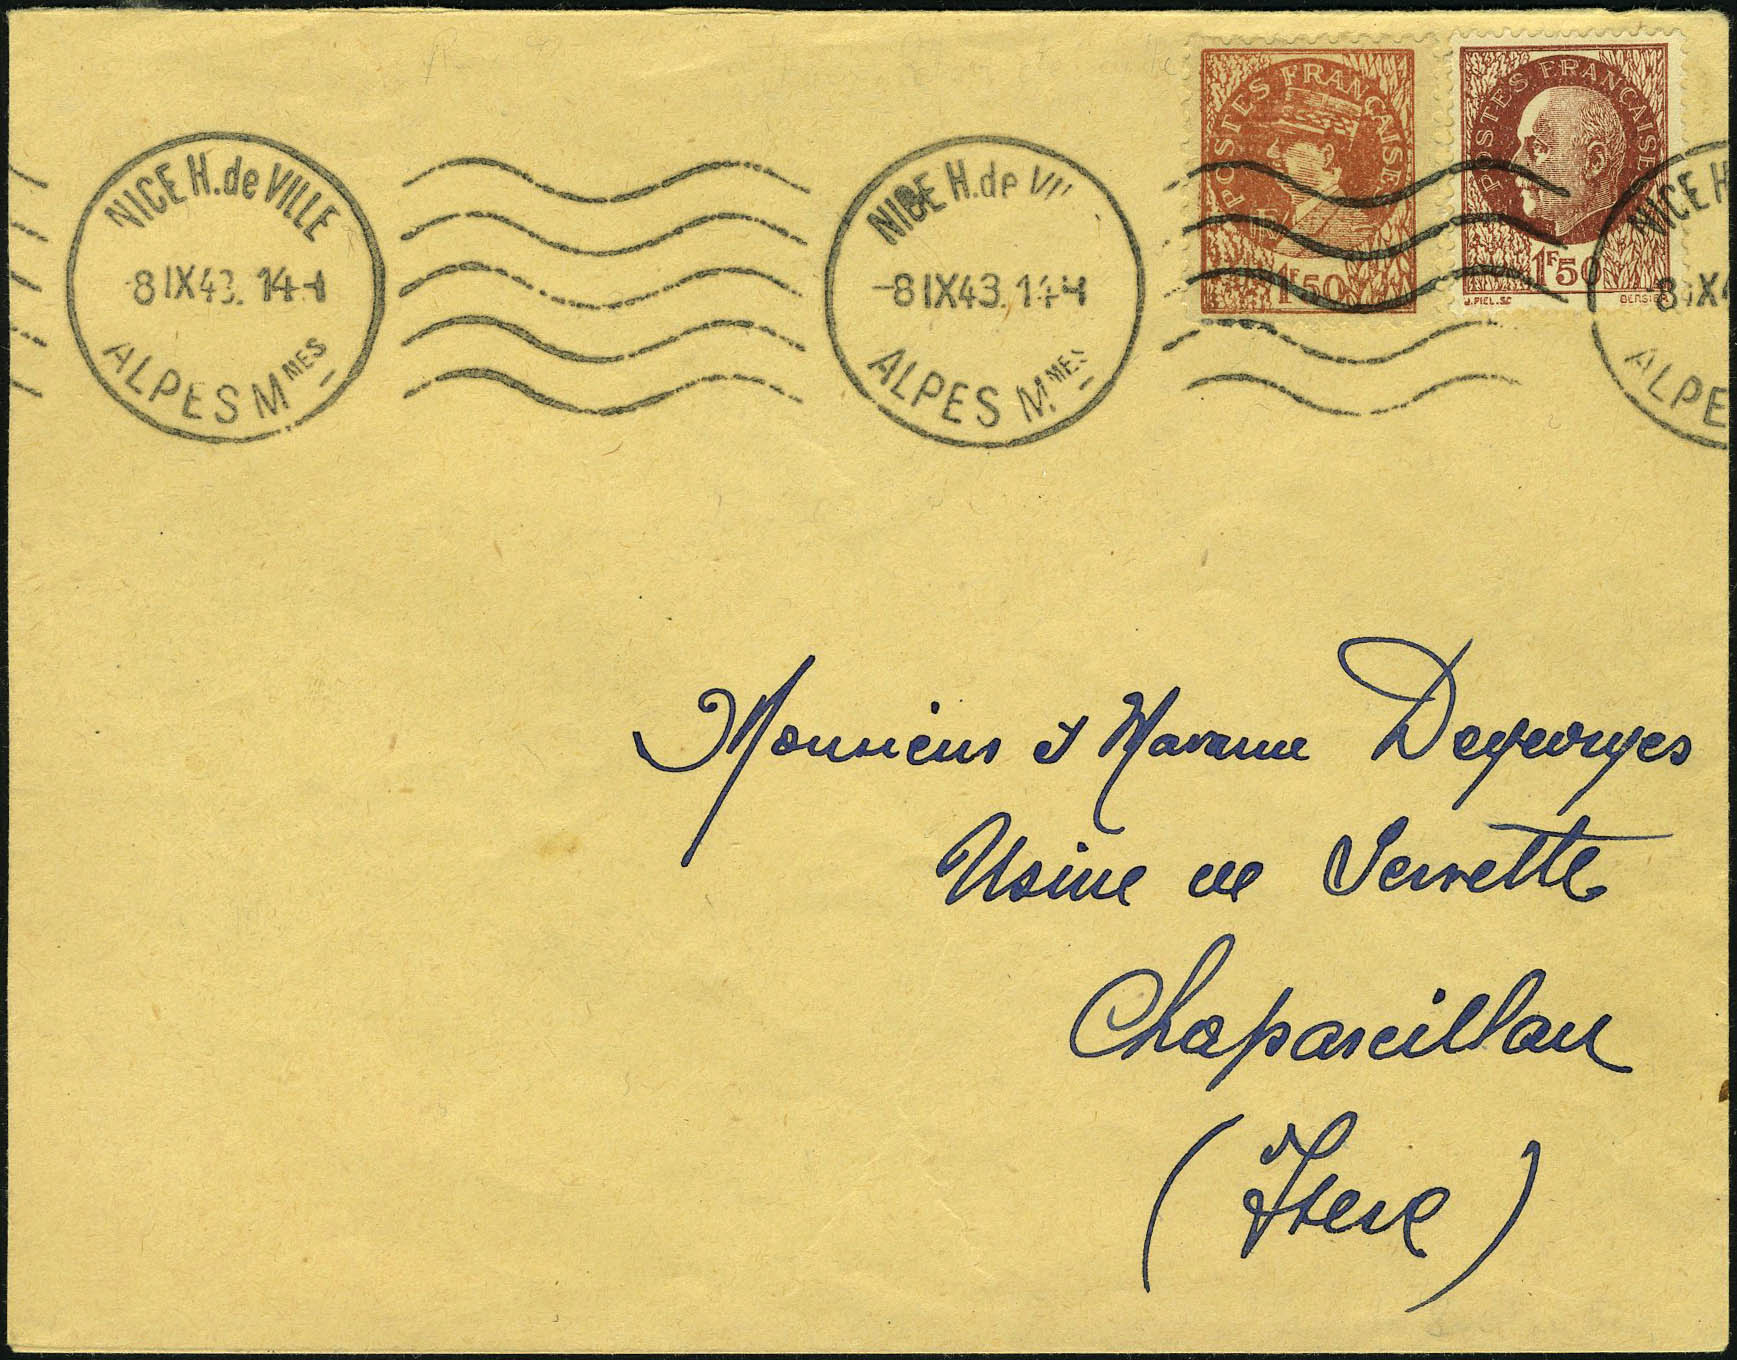 NICE H. de VILLE
-8 IX 43. 14 H
ALPES MMES
NICE H. de VILLE
-8 IX 43. 14 H
ALPES M.MES
POSTES FRANÇAISES
1F50
POSTES FRANÇAISES
1F50
J. PIEL. SC
BERSIER
NICE H
-8 IX 4
ALPE
Monsieur et Madame Degeorges
Usine de Servette
Chapareillan
(Isere)